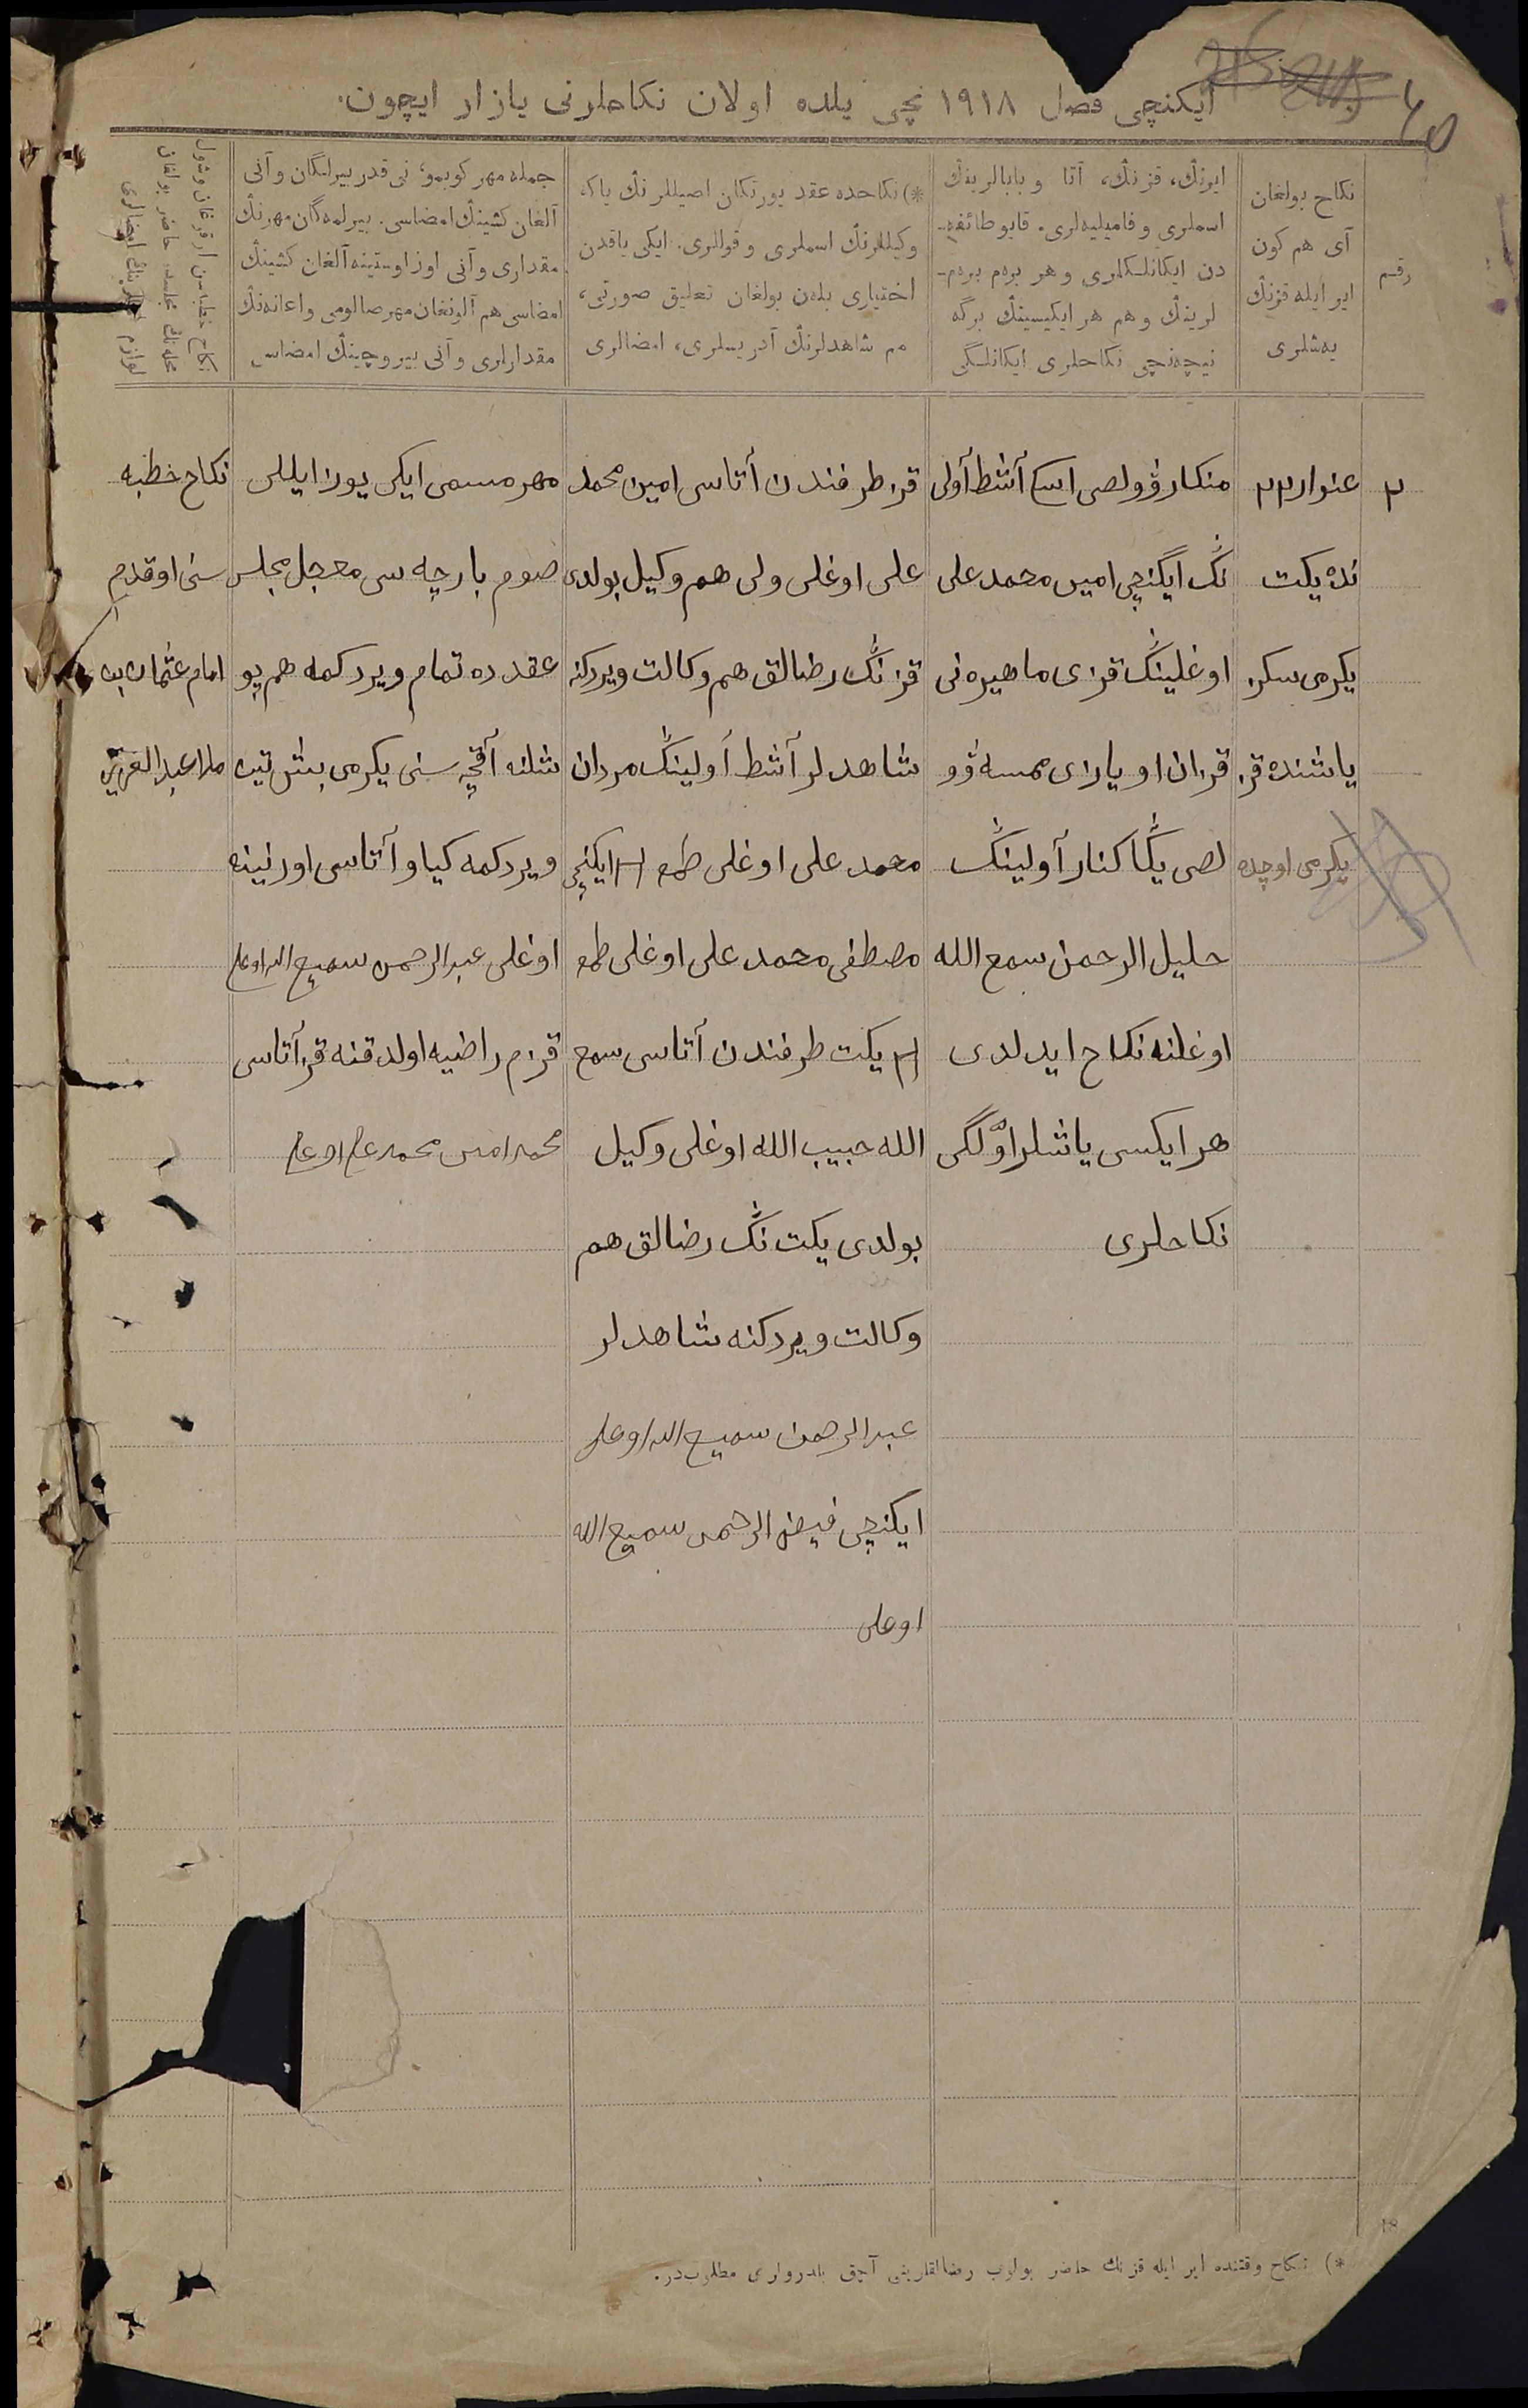 ایکنچی فصل ۱۹۱۸ نچی یلده اولان نکاحلرنی یازار ایچون.
رقم
نکاح بولغان
آی هم کون
ایر ایله قزنڭ
یەشلری
ایرنڭ، قزنڭ، آتا وبابالرینڭ
اسملری وفامیلیەلری. قایو طائفه‌-
دن ایکانلکلری وهر برەم برەم-
لرینڭ وهم هر ایکیسینڭ برگە
نیچەنچی نکاحلری ایکانلگی
*) نکاحده عقد یورتکان اصیللرنڭ یاکه
وکیللرنڭ اسملری وقوللری. ایکی یاقدن
اختیاری بلەن بولغان تعلیق صورتی،
هم شاهدلرنڭ آدریسلری، امضالری
جمله مهر کوبمو؛ نی قدر بیرلگان وآنی
آلغان کشینڭ امضاسی. بیرلمەگان مهرنڭ
مقداری وآنی اوز اوستینه آلغان کشینڭ
امضاسی هم آلونغان مهر صالومی واعانه‌نڭ
مقدارلری وآنی بیروچینڭ امضاسی
۲
عنوار ۲۲
نده یکت
یکرمی سکز
یاشنده قز
یکرمی اوچده
منکار وولصی اسکی آشط آولی
نڭ ایگنچی امین محمد علی
اوغلینڭ قزی ماهیره نی
قزان اویازی ممسه وو
لصی یڭا کنار آولینڭ
حلیل الرحمن سمع الله
اوغلنه نکاح ایدلدی
هر ایکسی یاشلر اوّلگی
نکاحلری
قز طرفندن أتاسی امین محمد
علی اوغلی ولی هم وکیل بولدی
قزنڭ رضالق هم وکالت ویردکنه
شاهدلر آشط أولینڭ مردان
محمد علی اوغلی طمع ایکنچی
مصطفی محمد علی اوغلی طمع
یکت طرفندن أتاسی سمع
الله حبیب الله اوغلی وکیل
بولدی یکت نڭ رضالق هم
وکالت ویردکنه شاهدلر
عبدالرحمن سمیع الله اوغلی
ایکنچی فیض الرحمن سمیع الله
اوغلی
مهر مسمی ایکی یوز ایللی
صوم بارچه سی معجل مجلس
عقدده تمام ویردکمه هم پو
شلنه آقچه سنی یکرمی بش تین
ویردکمه کیاو أتاسی اورنینه
اوغلی عبدالرحمن سمیع الله اوغلی
قزم راضیه اولدقنه قز أتاسی
محمد امین محمد علی اوغلی
نکاح خطبه
سنی اوقدم
امام عثمان بن
ملا عبد العزیز
*) نکاح وقتنده ایر ایله قزنڭ حاضر بولوب رضالقلرینی آچق بلدرولری مطلوبدر.